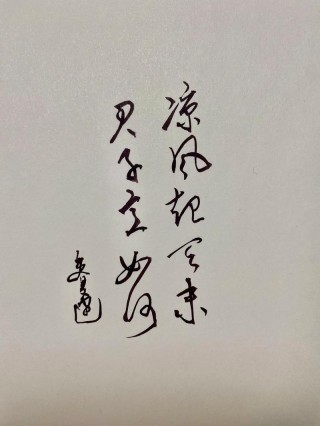 凉风起天末
君子意如何